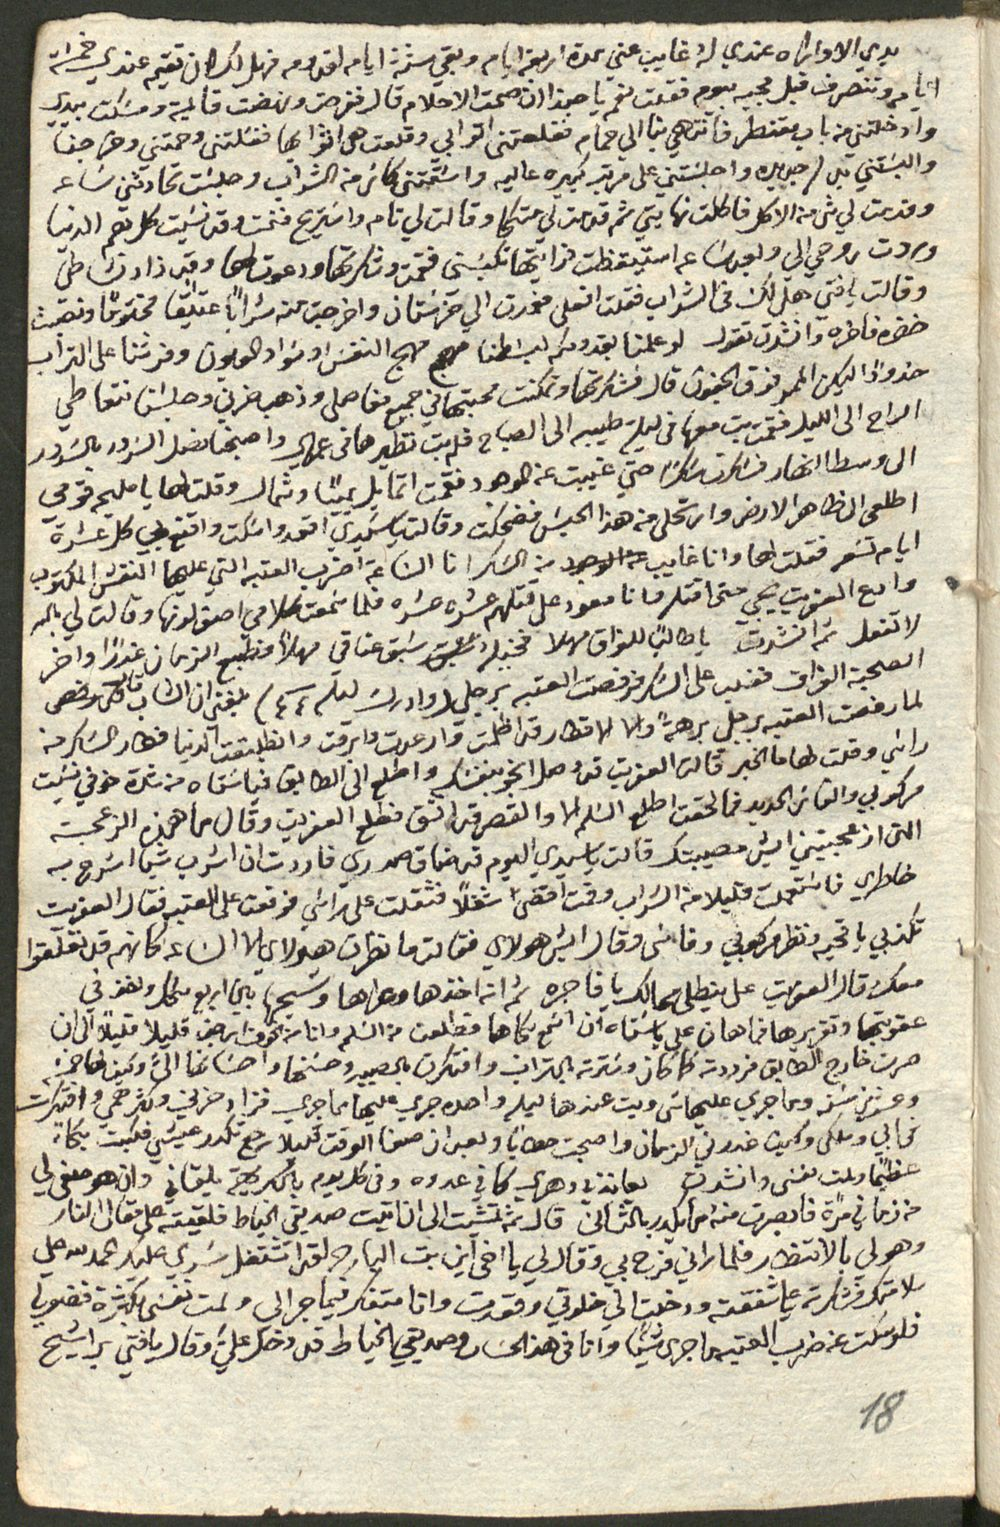 يدي الا واراه عندي له غايب عني مدة اربعة ايام وبقي ستة ايام لقدومه فهل لك ان تقيم عندي خمسة
ايام وتنصرف قبل مجيه بيوم فقلت نعم يا حبذا ان صحت الاحلام قال ففرحت ونهضت قايمة ومسكت بيدي
وادخلتني من باب مقنطر فانتهي بنا الي حمام فقلعتني اثوابي وقلعت هي اثوابها فغسلتني وحمتني وخرجنا
والبستني بدله جديده واجلستني على مرتبه كبيره عاليه واسقتني كاس من الشراب وجلست تحادثني ساعه
وقدمت لي شي من الاكل فاكلت نهايتي ثم قدمت لي متكا وقالت لي نام واستريح فنمت وقد نسيت كل هم الدنيا
وردت روحي الى وبعد ساعه استيقظت فرايتها تكبسني فقمت وشكرتها ودعوت لها وقد زاد نشاطي
وقالت يا فتي هل لك في الشراب فقلت افعلي فعمدت الي خرستان واخرجت منه شرابا عتيقا مختوما ونصبت
خضره فاخره وانشدت تقول لو علمنا بقدومكم لبسطنا مهج النفس او سواد العيون وفرشنا على التراب
خدودا ليكن الممر فوق الجفون قال فشكرتها وتمكنت محبتها في جميع مفاصلي وذهب حزني وجلسنا نتعاطي
الراح الى الليل فقمت بت معها في ليلة طيبه الى الصباح فلم بت نظيرها في عمري واصبحنا نصل السرور بالسرور
الى وسط النهار فسكرت سكرا حتي غيبت عن الوجود فقمت اتمايل يمينا وشمال وقلت لها يا مليحه قومي
اطلعي الى ظاهر الارض وارتحلي من هذا الحبس فضحكت وقالت يا سيدي اقعد واسكت واقنع بي كل عشرة
ايام تسعه فقلت لها وانا غايب عن الوجود من السكر انا الساعة اضرب العتبه التي عليها النقش المكتوب
وادع العفريت يجي حتى اقتله فانا معود على قتلهم عشره عشره فلما سمعت كلامي اصفر لونها وقالت لي بالله
لا تفعل ثم انشدت يا طالبا للفراق مهلا فحيلة سبق عتاقي مهلا فطبع الزمان غدرا واخر
الصحبة الفراق فغلب علي السكر فرفصت العتبه برجلي وادرك ليله (٤٤) بلغني ان الشاب قال
لما رفصت العتبه برجلي برهة والا الاقطار قد اظلمت وارعدت وابرقت وانطبقت الدنيا فطار السكر من
راسي وقلت لها ما الخبر قالت العفريت قد وصل انجو بنفسك واطلع الى الطابق فيا ستاه من شدة خوفي نسيت
مركوبي والفاس الحديد فما لحقت اطلع السلم الا والقصر قد انشق فطلع العفريت وقال ما هذه الزعجه
التي ازعجتيني ايش مصيبتك قالت يا سيدي اليوم قد ضاق صدري فاردت ان اشرب شيا اشرح به
خاطري فاستعملت قليلا من الشراب وقمت اقضي شغلا فثقلت علي راسي فوقعت على العتبه فقال العفريت
تكذبي يا قحبه ونظر مركوبي وفاسي وقال ايش هولاي فقالت ما نظرت هولاي الا الساعه كانهم قد تعلقوا
معك قال العفريت علي ينطلي محالك يا فاجره ثم انه اخذها وعراها وشبحها بين اربع سكك وقعد في
عقوبتها وتقريرها فما هان علي يا ستاه ان اسمع بكاها فطلعت من السلم وانا من الخوف ارجف قليلا قليلا الى ان
صرت خارج الطابق فرددته كما كان وسترته بالتراب وافتكرت بالصبيه وحسنها واحسانها الي وكيف لها خمسة
وعشرين سنه وما جري عليها مني وبت عندها ليله واحده جري عليها ما جري فزاد حزني وكثر همي وافتكرت
في ابي وملكي وكيف غدرني الزمان واصبحت حطابا وبعد ان صفا الوقت قليلا رجع تكدر عيشي فبكيت بكاء
عظيما ولمت نفسي وانشدت يعاندني دهري كاني عدوه وفي كل يوم بالكريهة يلقاني وان هو صفى لي
من زماني مرة فابصرت منه ما يكدر بالثاني قال ثم تمشيت الى ان اتيت صديقي الخياط فلقيته على مقالي النار
وهو لي بالانتظار فلما راني فرح بي وقال لي يا اخي اين بت البارح لقد اشتغل سري عليك الحمد لله على
سلامتك فشكرته علي شفقته ودخلت الي خلوتي وقعدت وانا متفكر فيما جرا لى ولمت نفسي لكثرة فضوليا
فلو سكت عن ضرب العتبه ما جرى شيا وانا في هذا الحساب وصديقي الخياط قد دخل علي وقال يا فتي برا شيخ
18